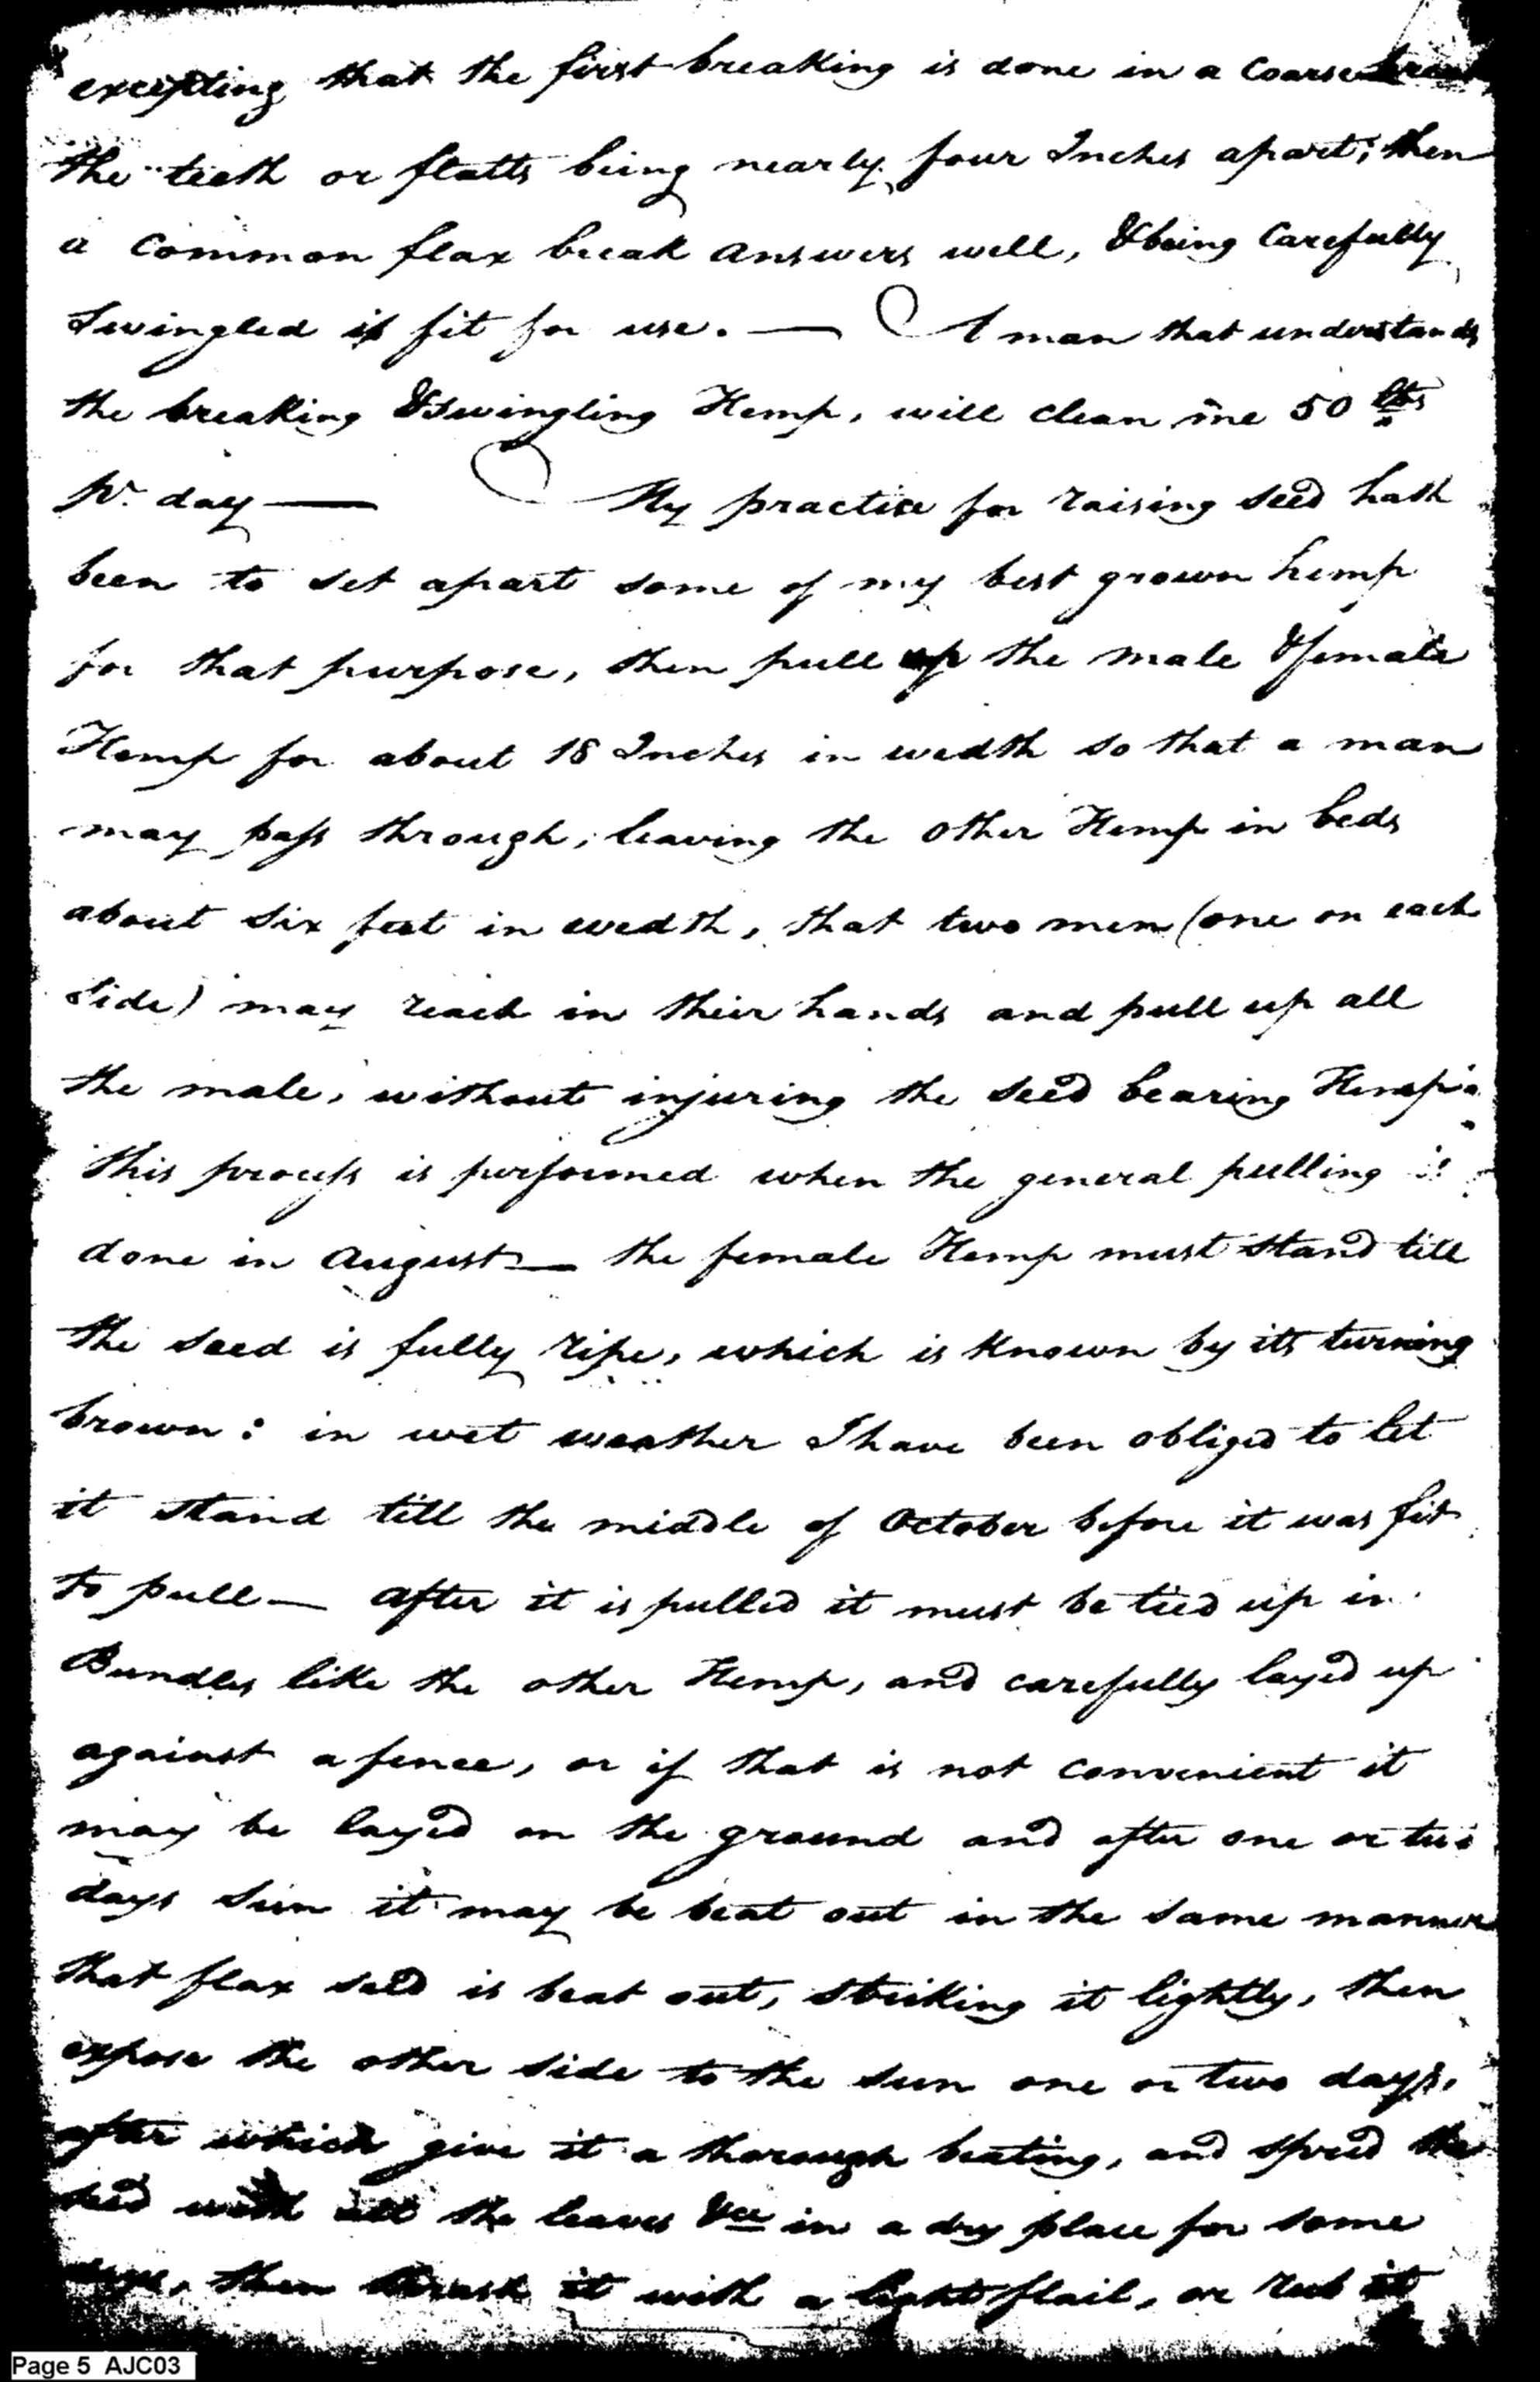 excepting that the first breaking is done in a Coarse break
the teeth or flatts being nearly four Inches apart; then
a Common flax break answers well, & being Carefully
Swingled is fit for use. — A man that understands
the breaking & swingling Hemp, will clean me 50 lbs
pr. day — My practice for raising seed hath
been to set apart some of my best grown hemp
for that purpose, then pull up the male & female
Hemp for about 18 Inches in wedth so that a man
may pass through, leaving the other Hemp in beds
about six feet in wedth, that two men (one on each
side) may reach in their hands and pull up all
the male, without injuring the seed bearing Hemp:
this process is performed when the general pulling is
done in August — the female Hemp must stand till
the seed is fully ripe, which is known by its turning
brown: in wet weather I have been obliged to let
it stand till the middle of October before it was fit
to pull — after it is pulled it must be tied up in
Bundles like the other Hemp, and carefully layed up
against a fence, or if that is not convenient it
may be layed on the ground and after one or two
days sun it may be beat out in the same manner
that flax seed is beat out, striking it lightly, then
expose the other side to the sun one or two days,
after which give it a thorough beating, and spred the
seed with all the leaves &ca in a dry place for some
days, then thrash it with a light flail, or rub it
Page 5 AJC03